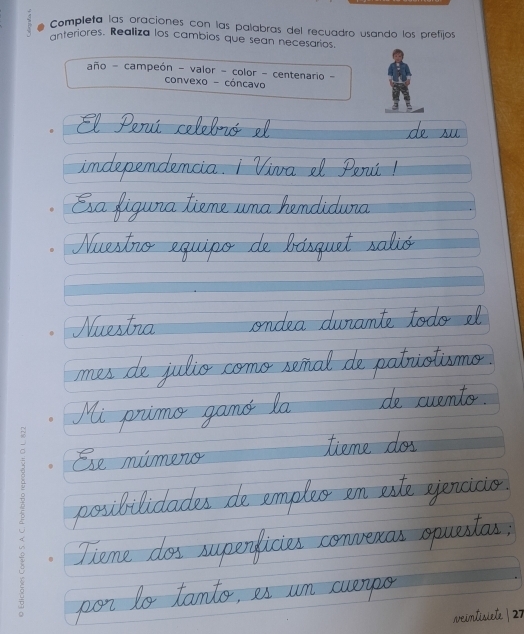 Completa las oraciones con las palabras del recuadro usando los prefijos
anteriores. Realiza los cambios que sean necesarios.
año - campeón - valor - color - centenario -
convexo - cóncavo
El Perú celebró el de su
independencia. ¡Viva el Perú!
Esa figura tiene una hendidura .
Nuestro equipo de básquet salió
.
Nuestra ondea durante todo el
mes de julio como señal de patriotismo.
Mi primo ganó la de cuento.
Ese número tiene dos
posibilidades de empleo en este ejercicio.
Tiene dos superficies convexas opuestas;
por lo tanto, es un cuerpo .
veintisiete | 27
© Ediciones Corefo S. A. C. Prohibido reproducir. D. L. 822